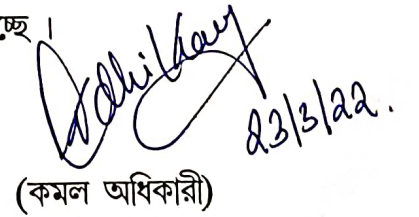 চ্ছে ।
Adhikary
23/3/22.
(কমল অধিকারী)